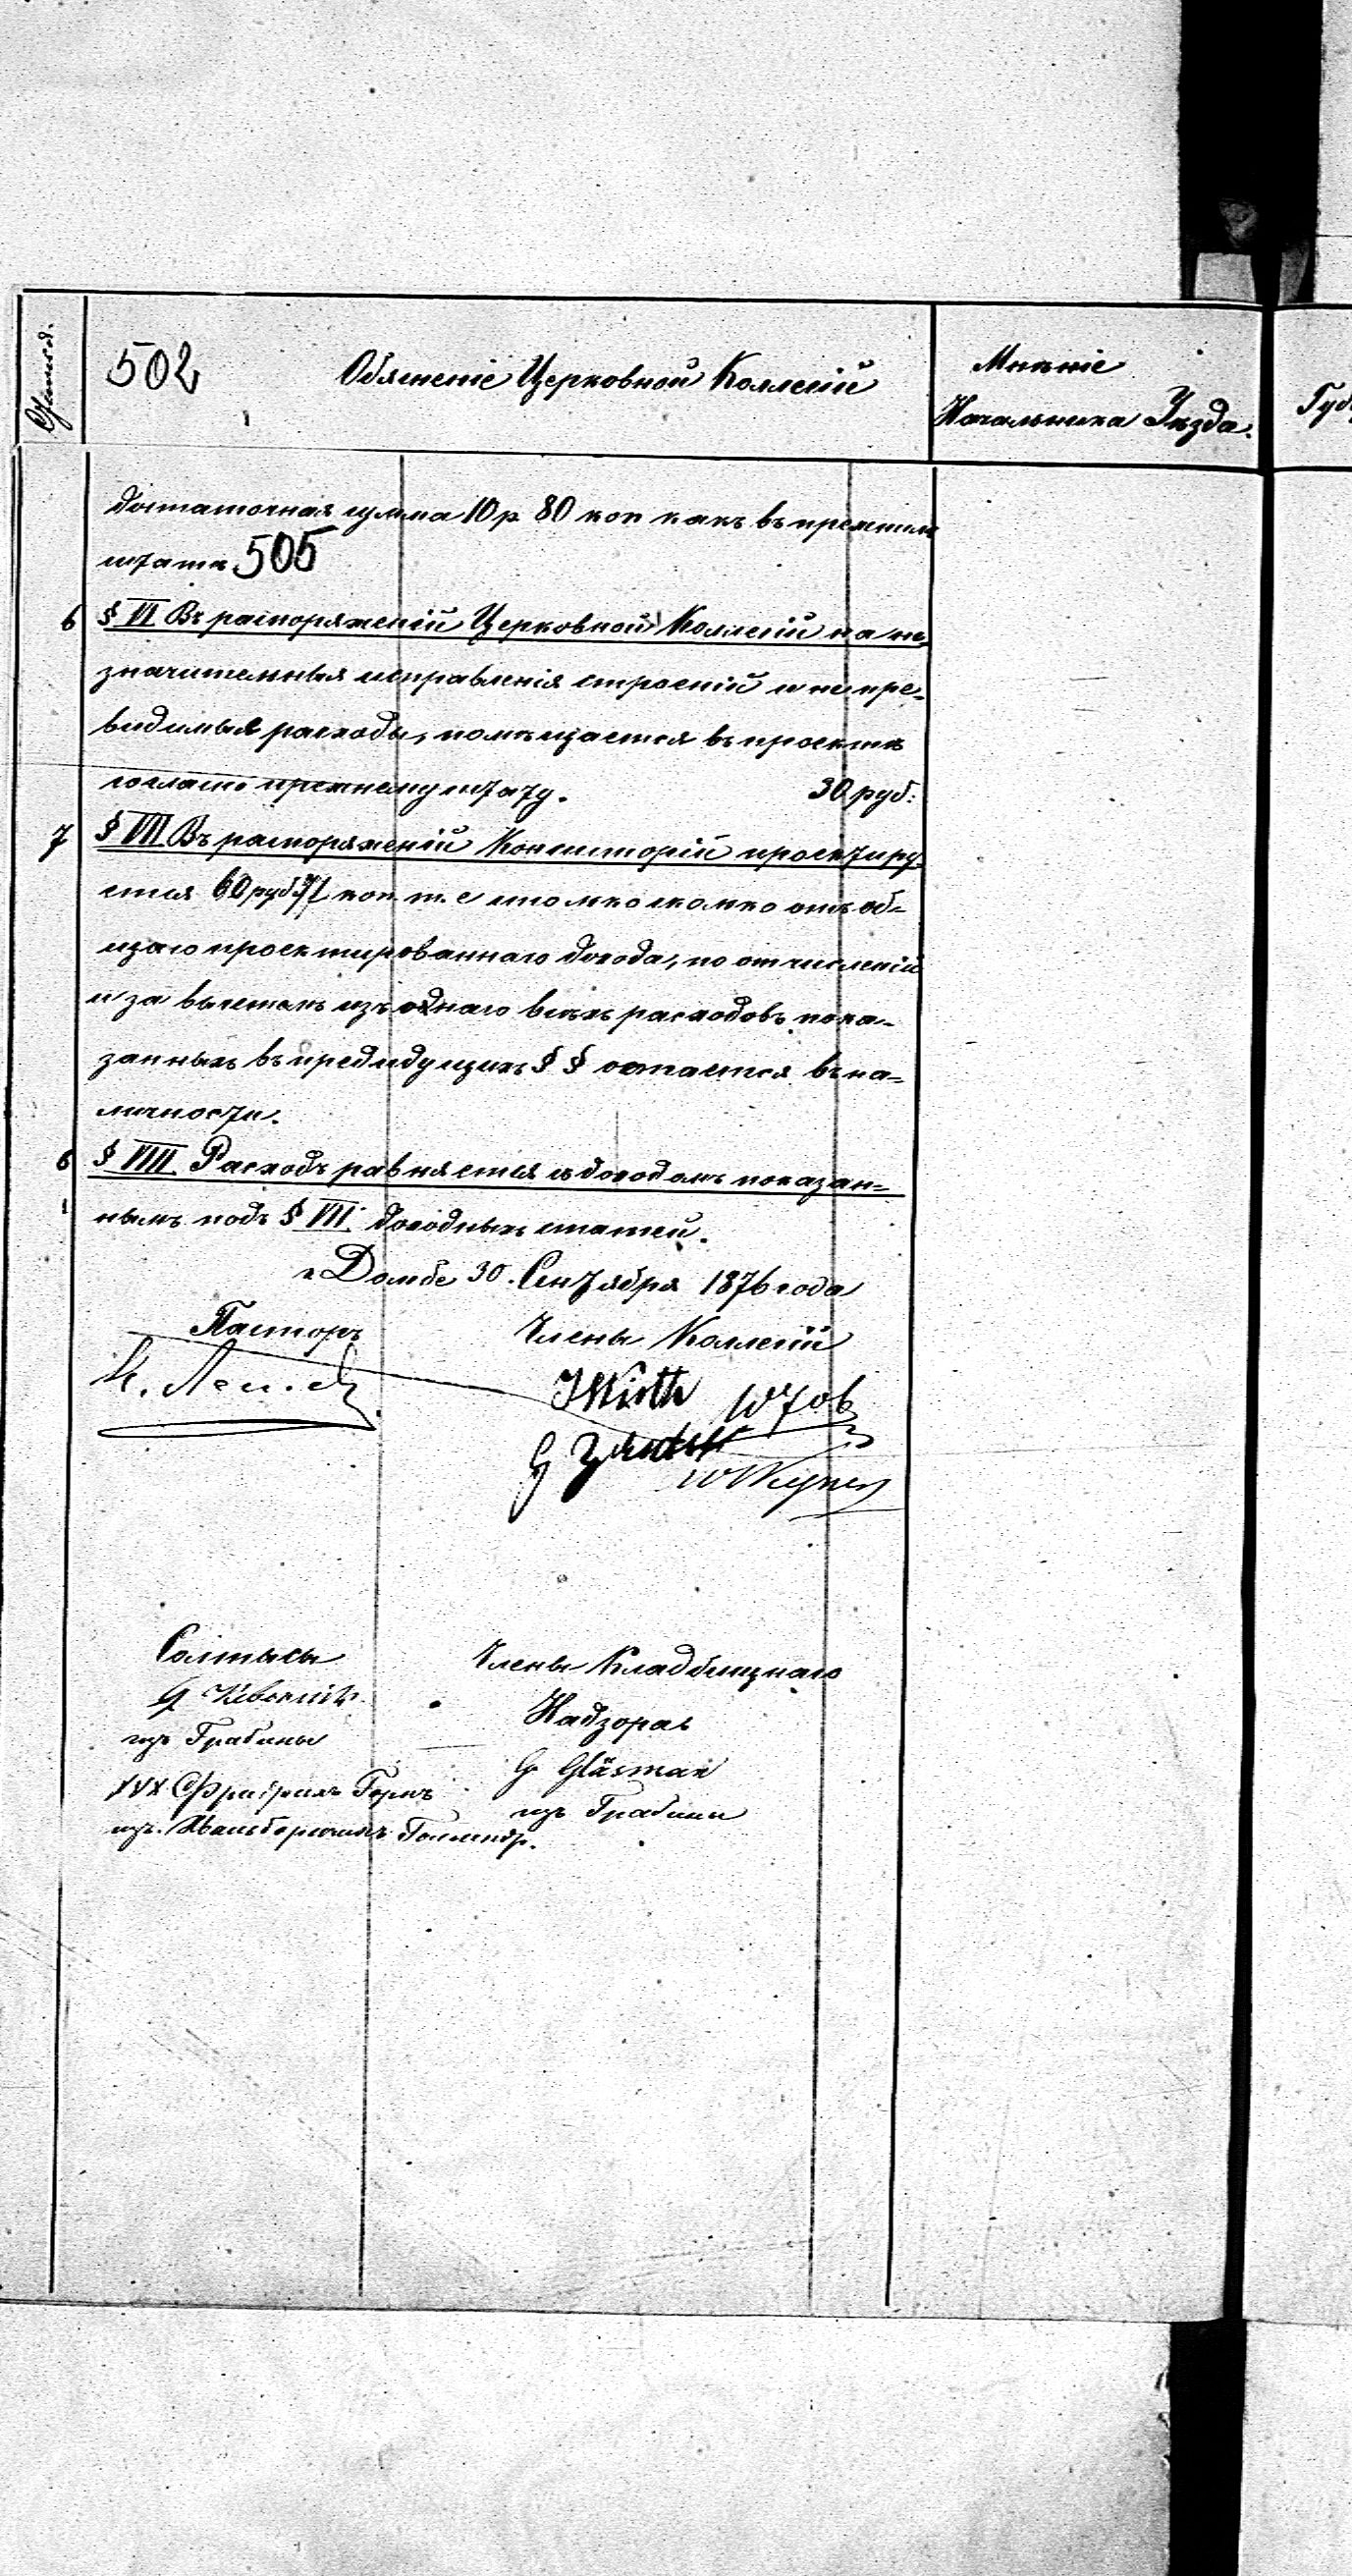 502
Обясненіе Церковной Коллегіи
Мнѣніе
Начальника Уѣзда.
достаточная сумма 10 р 80 коп какъ въ прежнем
штатѣ 505
6 § VI Въ распоряженіи Церковной Коллегіи на не
значительныя исправленія строеній и не пре-
видимыя расходы, помѣщается въ проектѣ
согласно прежнему штату. 30 руб:
7 § VII Въ распоряженіи Консисторіи проектиру
ется 60 руб 71 коп. т. е столько сколько отъ об-
щаго проектированнаго дохода, по отчисленіи
и за вычетомъ изъ однаго всѣхъ расходовъ пока-
занныхъ въ предидущихъ § § остается въ на-
личности.
§ VIII Расходъ равняется съ доходомъ показан-
нымъ подъ § VII доходныхъ статей.
г Домбе 30. Сентября 1876 года
Пасторъ
Члены Коллегіи
J Wirth
G
Солтысы
Члены Кладбищнаго
Надзора
изъ Грабины
G Gläsman
XXX Фридрихъ Горнъ
изъ Грабины
изъ Голлендр.